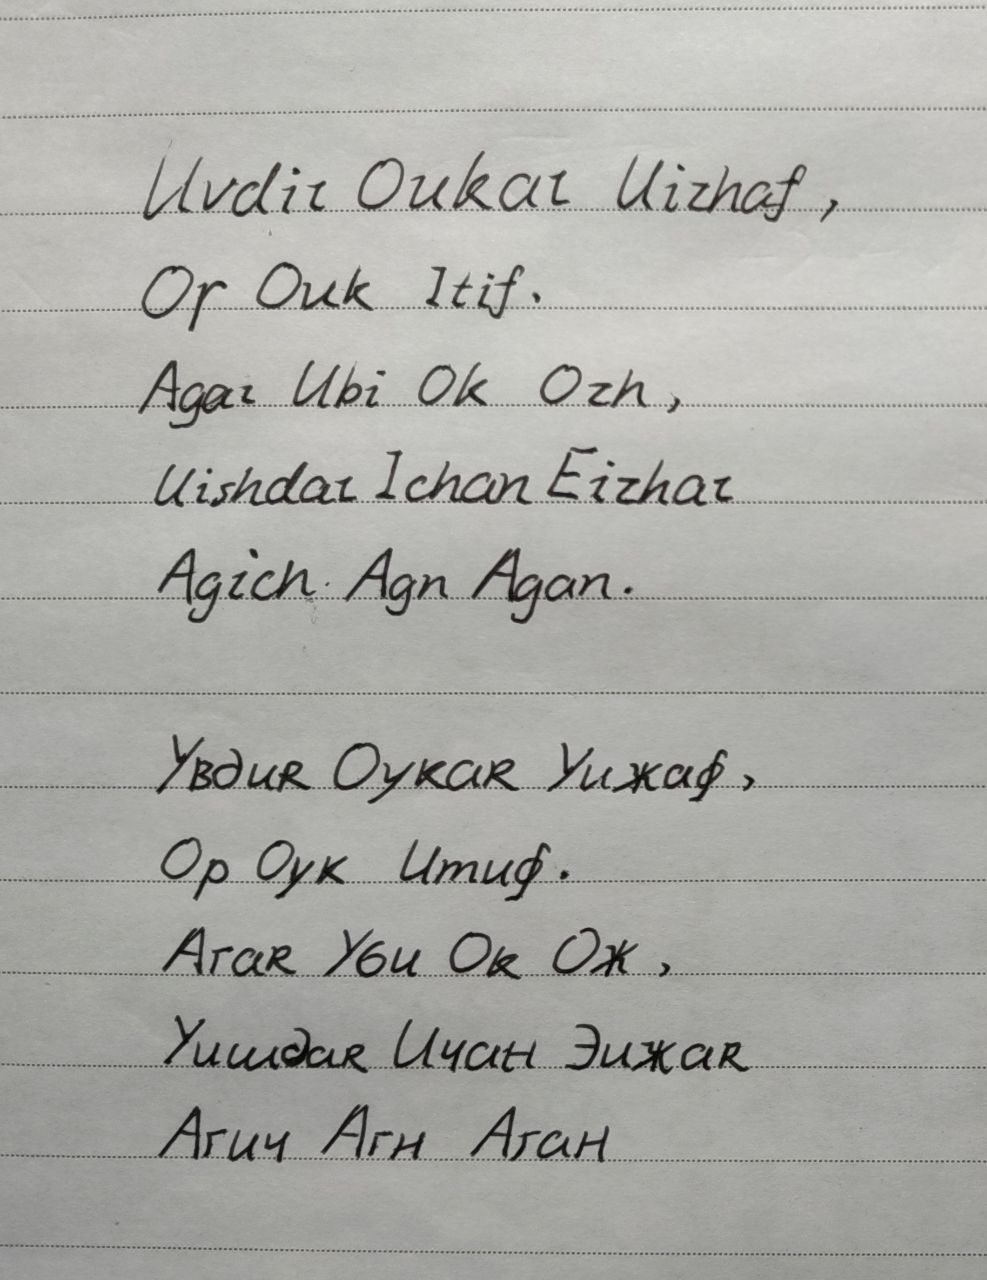 Uvdiz Oukaz Uizhaf,
Or Ouk Itif.
Agaz Ubi Ok Ozh,
Uishdaz Ichan Eizhaz
Agich Agn Agan.
Увдиʀ Оукаʀ Уижаф,
Ор Оук Итиф.
Агаʀ Уби Ок Ож,
Уишдаʀ Ичан Эижаʀ
Агич Агн Аган